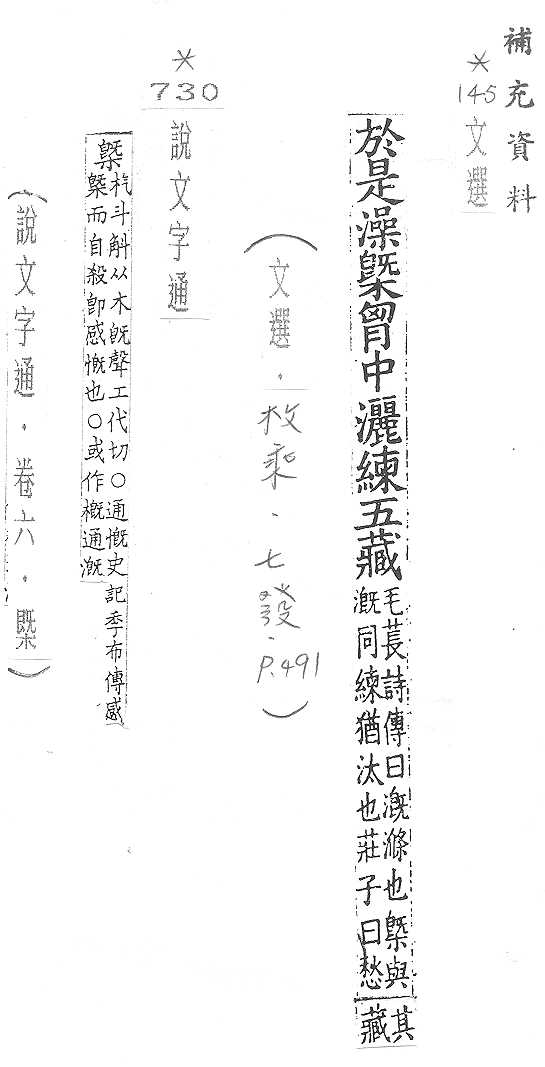 補充資料
*
145
文選
於是澡槩胷中灑練五藏
毛萇詩傳曰溉滌也槩與
溉同練猶汰也莊子曰愁
其
藏
(文選．枚乘、七發．P.491)
*
730
說文字通
槩
杚斗斛从木旣聲工代切○通慨史記季布傳感
槩而自殺卽感慨也○或作槪通溉
(說文字通．卷六．槩)